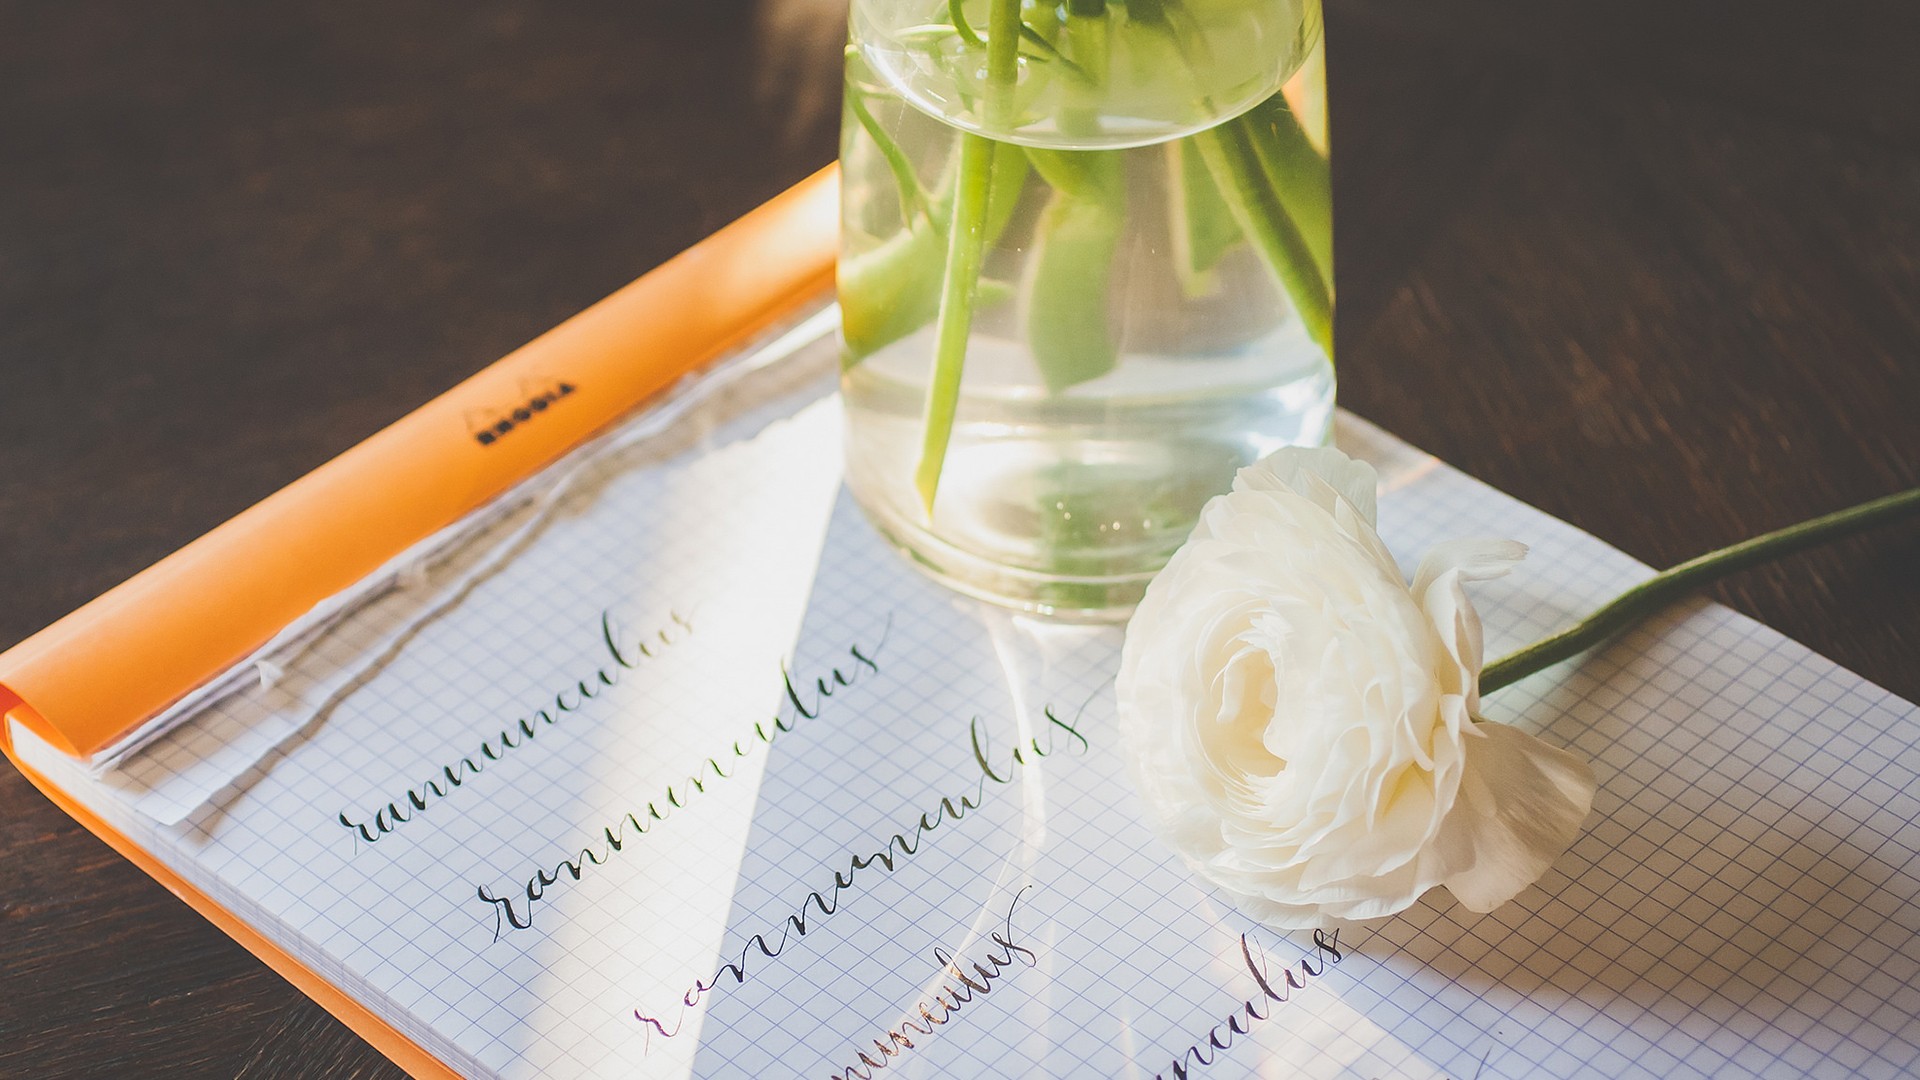 RHODIA
ranunculus
ranunculus
ranunculus
nunculus
nculus